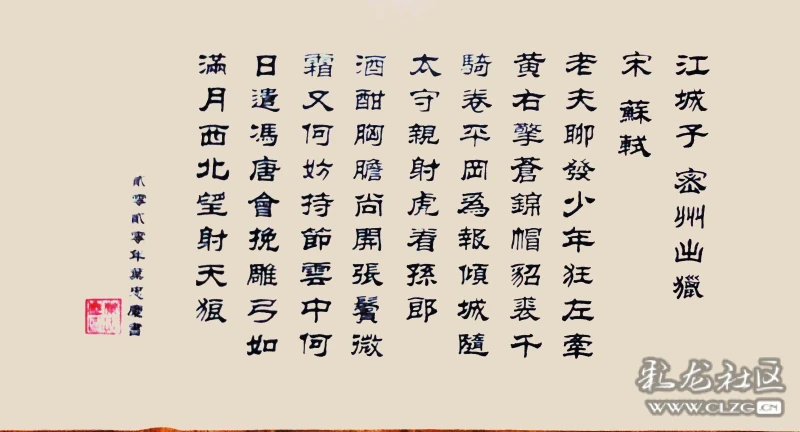 江城子 密州出獵
宋 蘇軾
老夫聊發少年狂左牽
黄右擎蒼錦帽貂裘千
騎卷平岡爲報傾城隨
太守親射虎看孫郎
酒酣胸膽尚開張鬢微
霜又何妨持節雲中何
日遣馮唐會挽雕弓如
滿月西北望射天狼
貳零貳零年萬忠慶書
彩龙社区
WWW.CLZG.CN